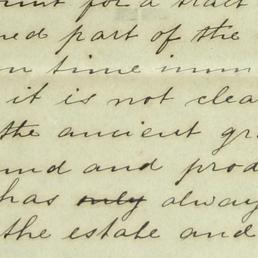 for a tract
part of the
time imm
it is not clea
the ancient gr
and prod
has only alway
the estate and